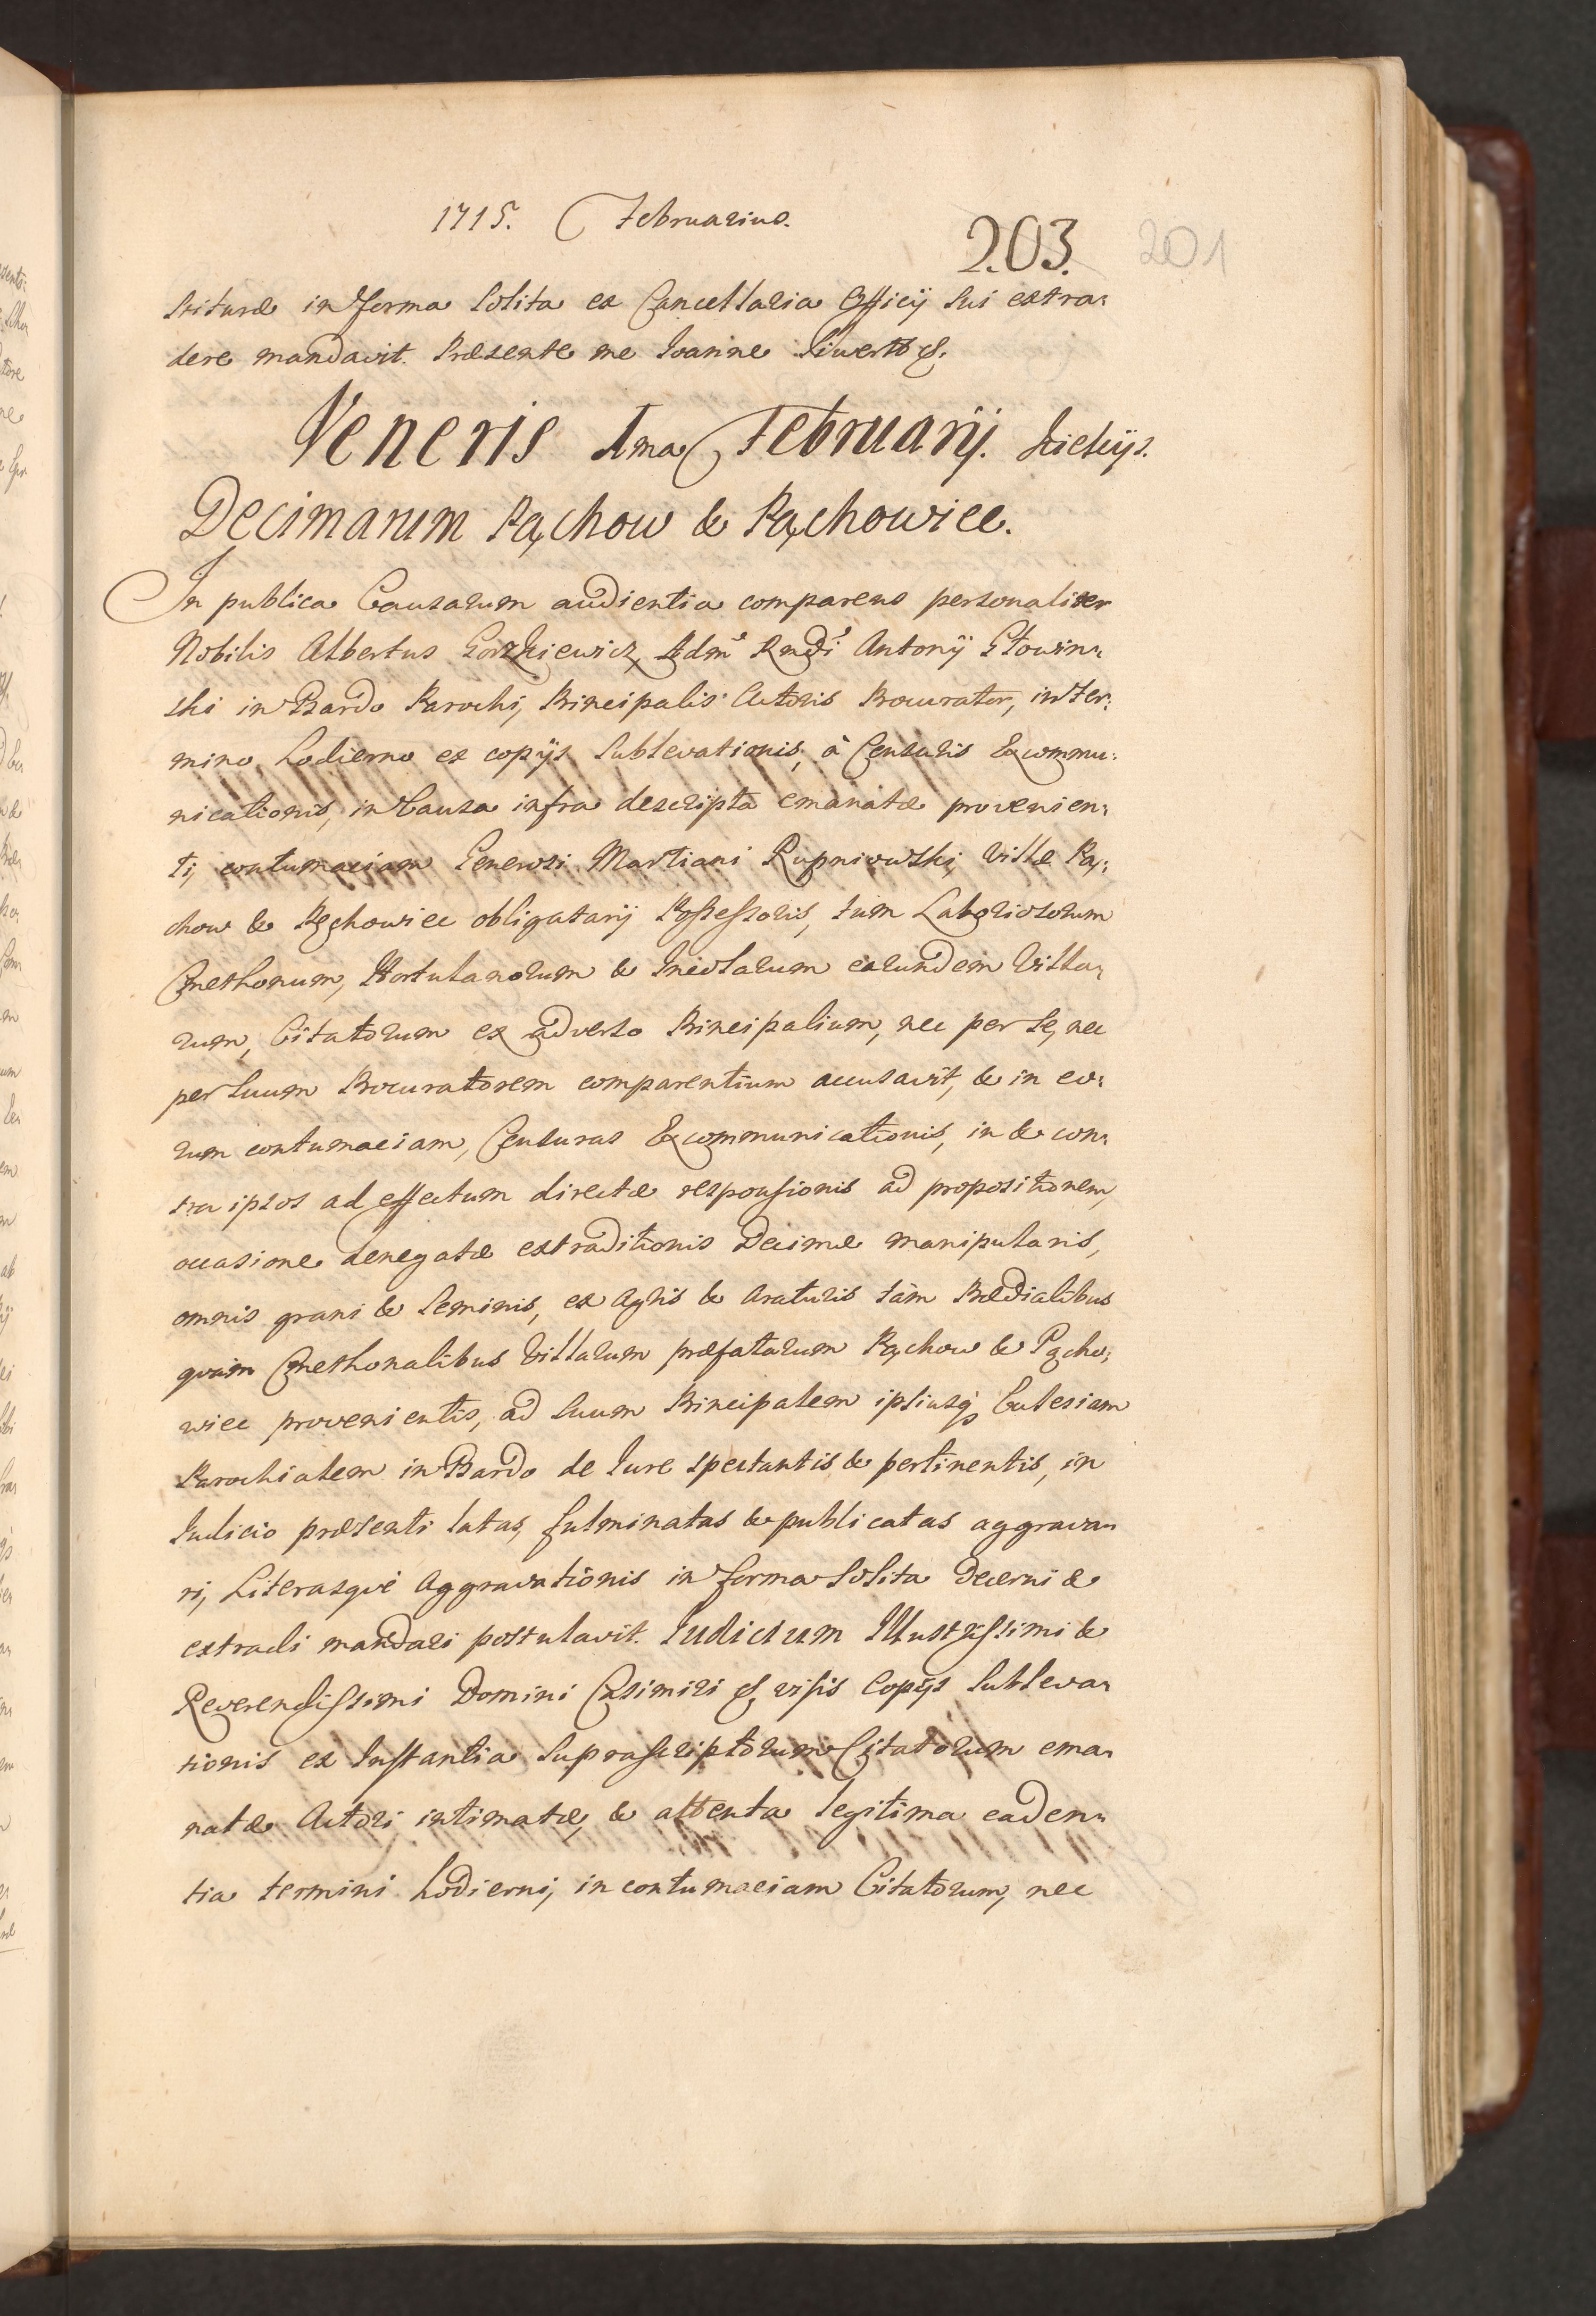 1715. Februarius.
203. 201
stituræ in forma solita ex Cancellaria Officij sui extra:
dere mandavit. Præsente me Ioanne Siwert &.
Veneris 1ma Februarij. Kielcijs.
Decimarum Pąchow & Pąchowiec.
In publica Causarum audientia comparens personaliter
Nobilis Albertus Gorzkiewicz, Admi Rndi Antonij Głowin:
ski in Bardo Parochi, Principalis Actoris Procurator, in ter:
mino hodierno ex copijs sublevationis, à Censuris Excommu:
nicationis, in Causa infra descripta emanatæ provenien:
ti, contumaciam Generosi Martiani Rupniowski, Villæ Pą:
chow & Pąchowiec obligatarij Possessoris, tum Laboriosorum
Cmethonum, Hortulanorum & Incolarum earundem Villa:
rum, Citatorum ex adverso Principalium, nec per se, nec
per suum Procuratorem comparentium accusavit, & in eo:
rum contumaciam, Censuras Excommunicationis, in & con:
tra ipsos ad effectum directæ responsionis ad propositionem,
occasione denegatæ extraditionis Decimæ manipularis,
omnis grani & seminis, ex Agris & Araturis tàm Prædialibus
quàm Cmethonalibus Villarum præfatarum Pąchow & Pącho:
wiec provenientis, ad suum Principalem ipsiusq; Ecclesiam
Parochialem in Bardo de Iure spectantis & pertinentis, in
Iudicio præsenti latas, fulminatas & publicatas aggrava:
ri, Literasquè Aggravationis in forma solita decerni &
extradi mandari postulavit. Iudicium Illustrissimi &
Reverendissimi Domini Casimiri &, visis Copijs Subleva:
tionis ex Instantia suprascriptorum Citatorum ema:
natæ Actori intimatæ, & attenta legitima caden:
tia termini hodierni, in contumaciam Citatorum, nec